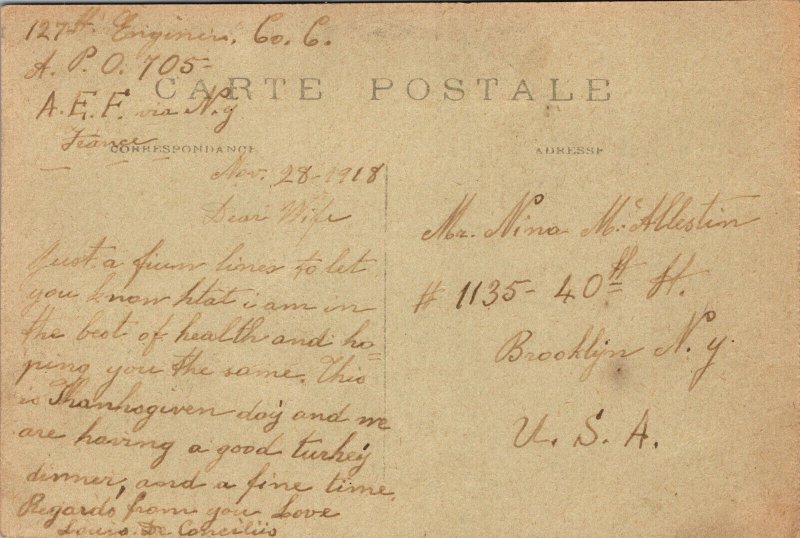 127th Engineers, Co. C.
A. P. O. 705-
CARTE POSTALE
A. E. F. via N.y
France
CORRESPONDANCE
ADRESSE
Nov. 28-1918
Dear Wife
Just a fiuw lines to let
you know htat i am in
the best of health and ho=
ping you the same. This
is Thanhsgiven day and we
are having a good turkey
dinner, and a fine time.
Regards from you Love
De Conciliis
Mr. Nina Mc Allestin
# 1135- 40th St.
Brooklyn N. y.
U. S. A.